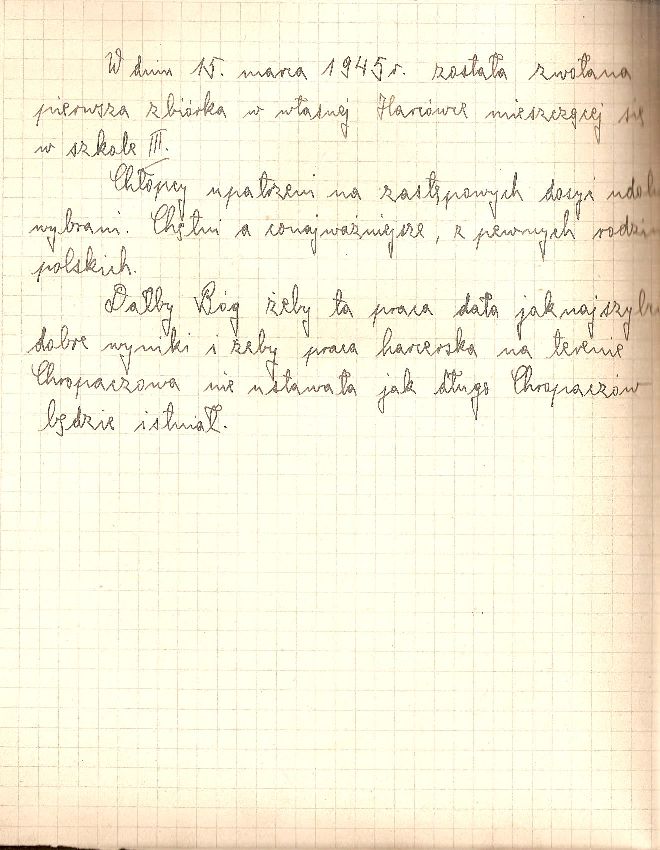 W dniu 15. marca 1945r. została zwołana
pierwsza zbiórka w własnej Harcówce mieszczęcej się
w szkole III.
Chłopcy upatrzeni na zastępowych dosyć udol
wybrani. Chętni a conajważniejsze, z pewnych rodzin
polskich.
Dałby Bóg żeby ta praca dała jaknajszyb
dobre wyniki i żeby praca harcerska na terenie
Chropaczowa nie ustawała jak długo Chropaczów
będzie istniał.